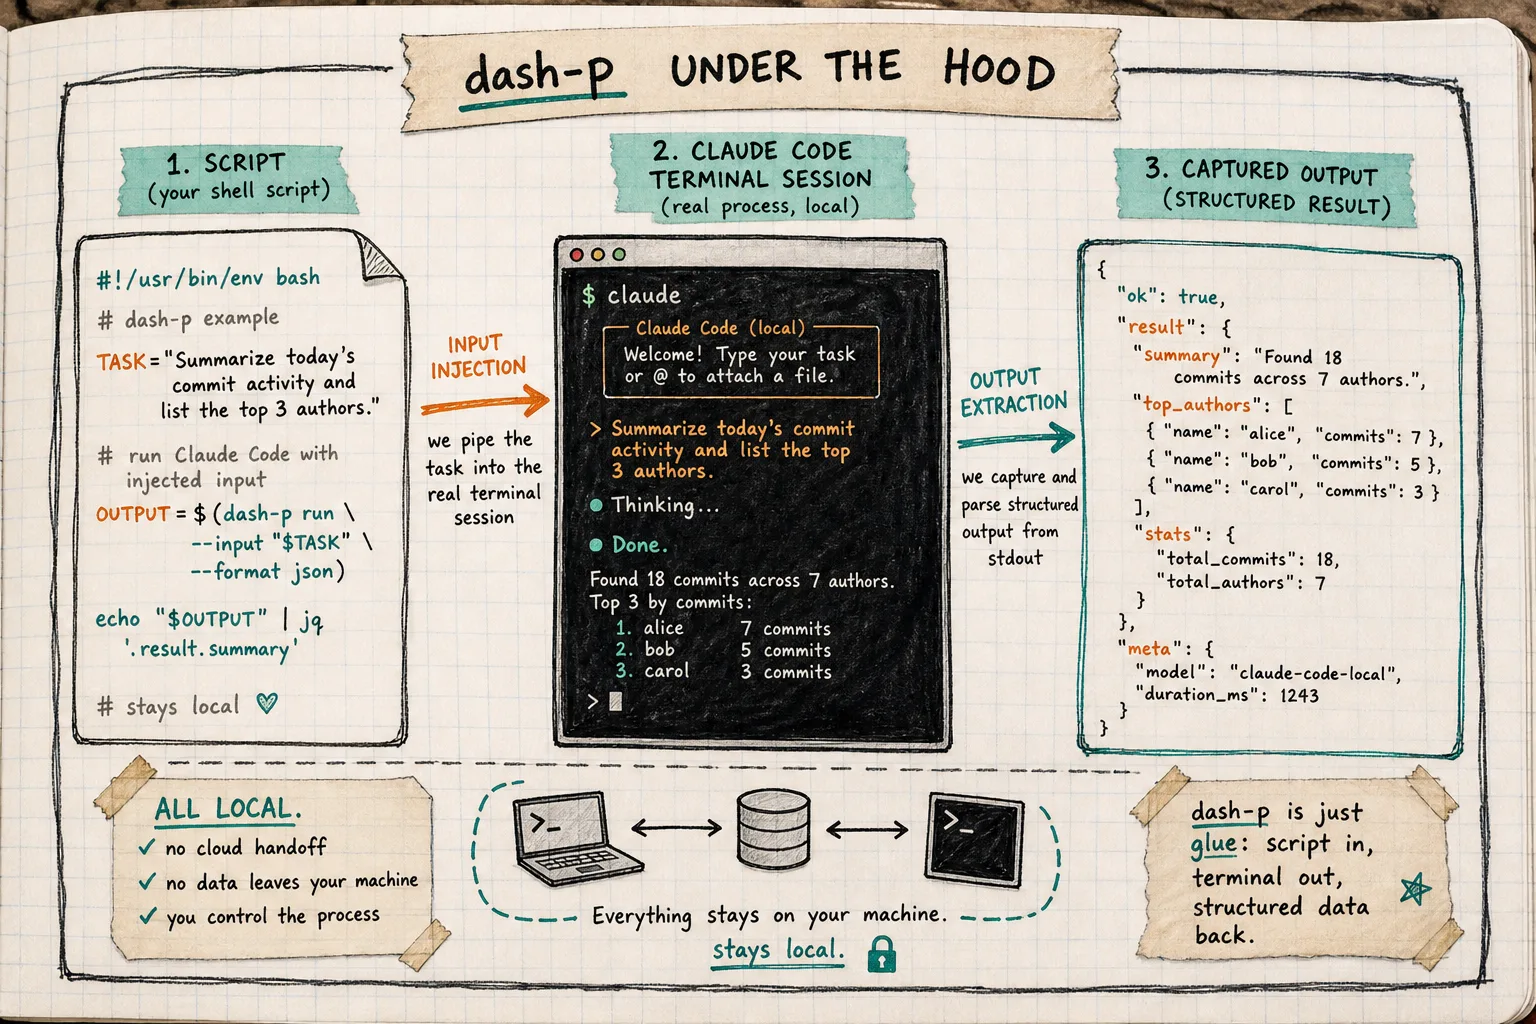 dash-p UNDER THE HOOD
1. SCRIPT
(your shell script)
#!/usr/bin/env bash
# dash-p example
TASK="Summarize today's
commit activity and
list the top 3 authors."
# run Claude Code with
injected input
OUTPUT = $(dash-p run \
--input "$TASK" \
--format json)
echo "$OUTPUT" | jq
'.result.summary'
# stays local ♡
INPUT
INJECTION
we pipe the
task into the
real terminal
session
2. CLAUDE CODE
TERMINAL SESSION
(real process, local)
$ claude
Claude Code (local)
Welcome! Type your task
or @ to attach a file.
> Summarize today's commit
activity and list the top
3 authors.
● Thinking...
● Done.
Found 18 commits across 7 authors.
Top 3 by commits:
1. alice 7 commits
2. bob 5 commits
3. carol 3 commits
>
OUTPUT
EXTRACTION
we capture and
parse structured
output from
stdout
3. CAPTURED OUTPUT
(STRUCTURED RESULT)
{
"ok": true,
"result": {
"summary": "Found 18
commits across 7 authors.",
"top_authors": [
{ "name": "alice", "commits": 7 },
{ "name": "bob", "commits": 5 },
{ "name": "carol", "commits": 3 }
],
"stats": {
"total_commits": 18,
"total_authors": 7
}
},
"meta": {
"model": "claude-code-local",
"duration_ms": 1243
}
}
ALL LOCAL.
✓ no cloud handoff
✓ no data leaves your machine
✓ you control the process
>_
>_
Everything stays on your machine.
stays local.
dash-p is just
glue: script in,
terminal out,
structured data
back.